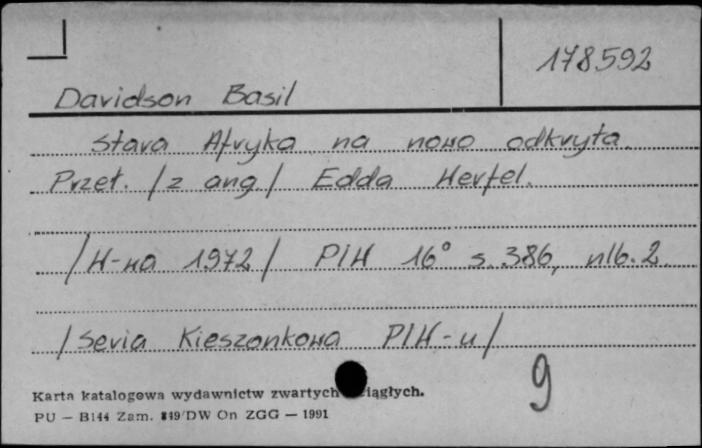 178592
Davidson Basil
Stara Afryka na nowo odkryta.
Przeł. /z ang./ Edda Werfel.
/W-wa 1972/ PIW 16° s. 386, nlb. 2.
/Seria Kieszonkowa PIW-u/
9
Karta katalogowa wydawnictw zwartych ciągłych.
PU — B144 Zam. 849/DW On ZGG — 1991